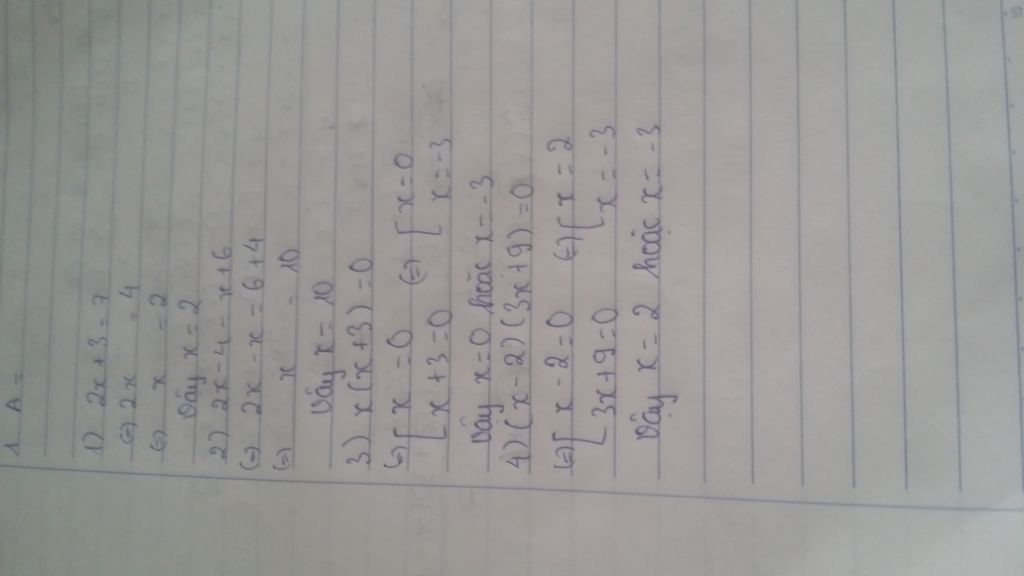 1. A =
1) 2x + 3 = 7
(=) 2x = 4
(=) x = 2
Vậy x = 2
2) 2x - 4 = x + 6
(=) 2x - x = 6 + 4
(=) x = 10
Vậy x = 10
3) x (x + 3) = 0
(=) [ x = 0 (=) [ x = 0
[ x + 3 = 0 x = -3
Vậy x = 0 hoặc x = -3
4) (x - 2) (3x + 9) = 0
(=) [ x - 2 = 0 (=) [ x = 2
[ 3x + 9 = 0 [ x = -3
Vậy x = 2 hoặc x = -3